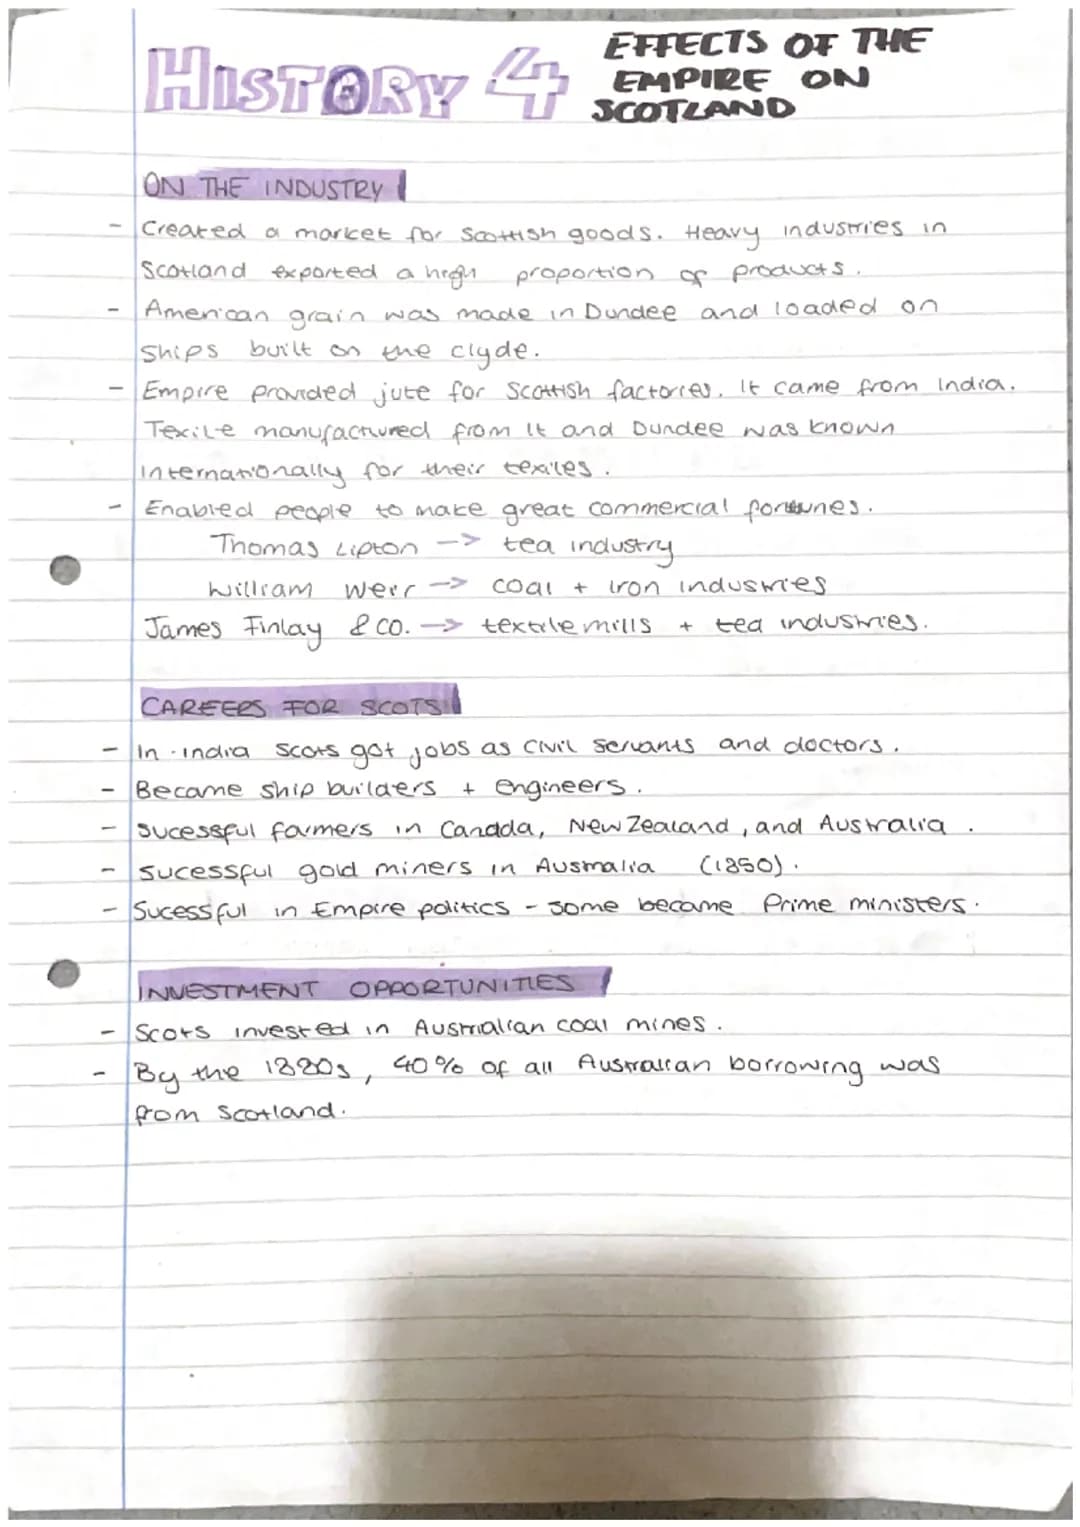 HISTORY 4
EFFECTS OF THE
EMPIRE ON
SCOTLAND
ON THE INDUSTRY
- Created a market for Scottish goods. Heavy industries in
Scotland exported a high proportion of products.
- American grain was made in Dundee and loaded on
ships built on the clyde.
- Empire provided jute for Scottish factories. It came from India.
Texile manufactured from it and Dundee was known
internationally for their texiles.
- Enabled people to make great commercial fortunes.
Thomas Lipton -> tea industry
William Weir -> coal + iron industries
James Finlay & co. -> textile mills + tea industries.
CAREERS FOR SCOTS
- In india Scots got jobs as civil servants and doctors.
- Became ship builders + engineers.
- Sucessful farmers in Canada, New Zealand, and Australia.
- Sucessful gold miners in Australia (1850).
- Sucessful in Empire politics - some became Prime ministers.
INVESTMENT OPPORTUNITIES
- Scots invested in Australian coal mines.
- By the 1880s, 40% of all Australian borrowing was
from Scotland.